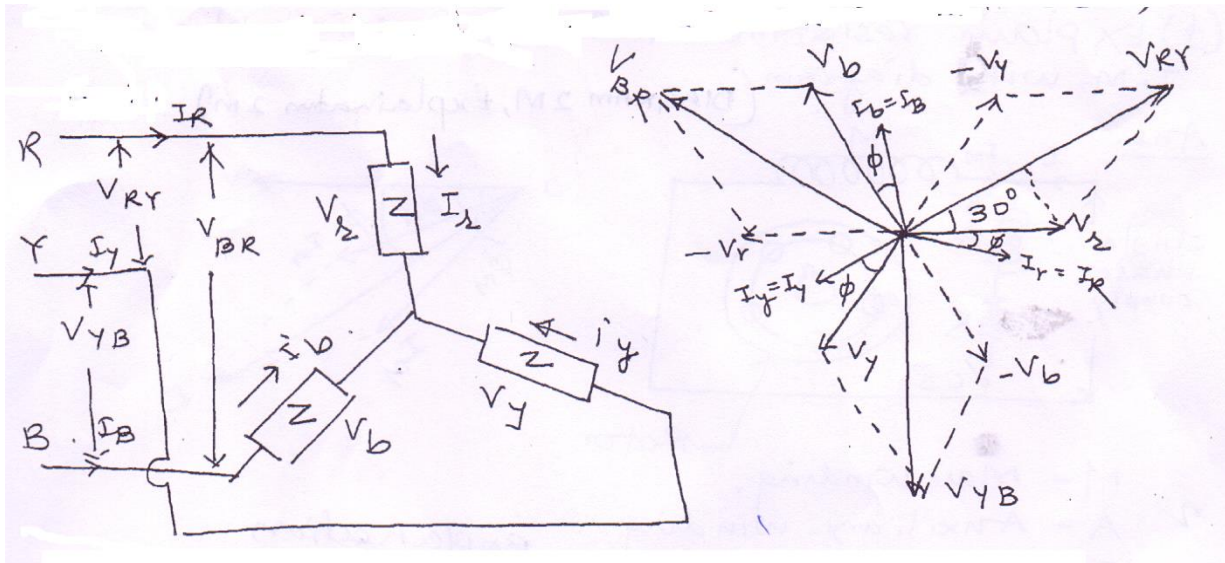 R
I_R
V_RY
Y
I_y
V_YB
V_BR
B
I_B
V_r
Z
I_r
Z
V_b
Z
i_y
V_y
V_BR
V_b
I_b=I_B
φ
-V_y
V_RY
30°
V_r
φ
I_r = I_R
-V_r
I_y=I_y
φ
V_y
-V_b
V_YB